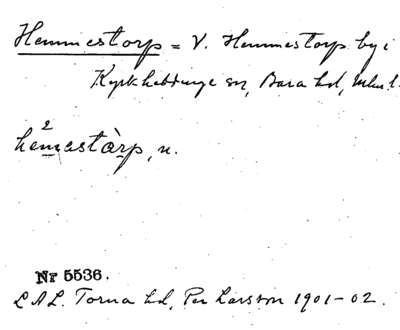 Hemmestorp = V. Hemmestorp by i
Kyrkheddinge sn, Bara hd, Mlm. l.
he²mastàrp, n.
Nr 5536.
L.A.L. Torna hd, Per Larsson 1901-02.